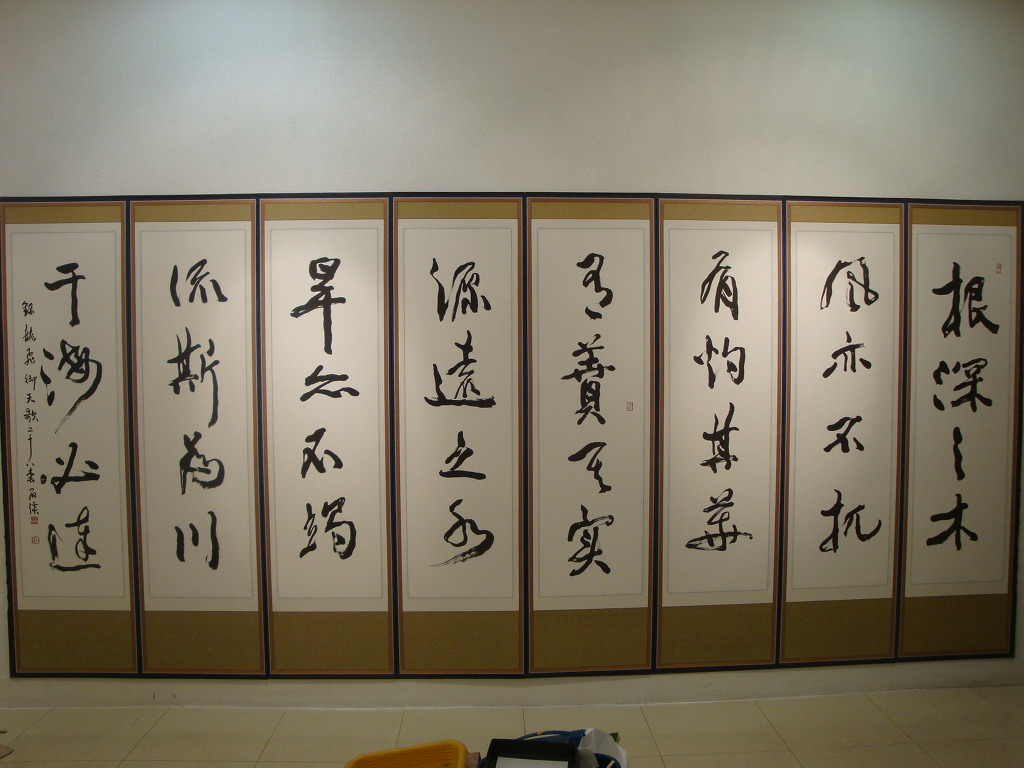 根深之木
風亦不扤
有灼其華
有蕡其實
源遠之水
旱亦不竭
流斯為川
于海必達
錄龍飛御天歌二